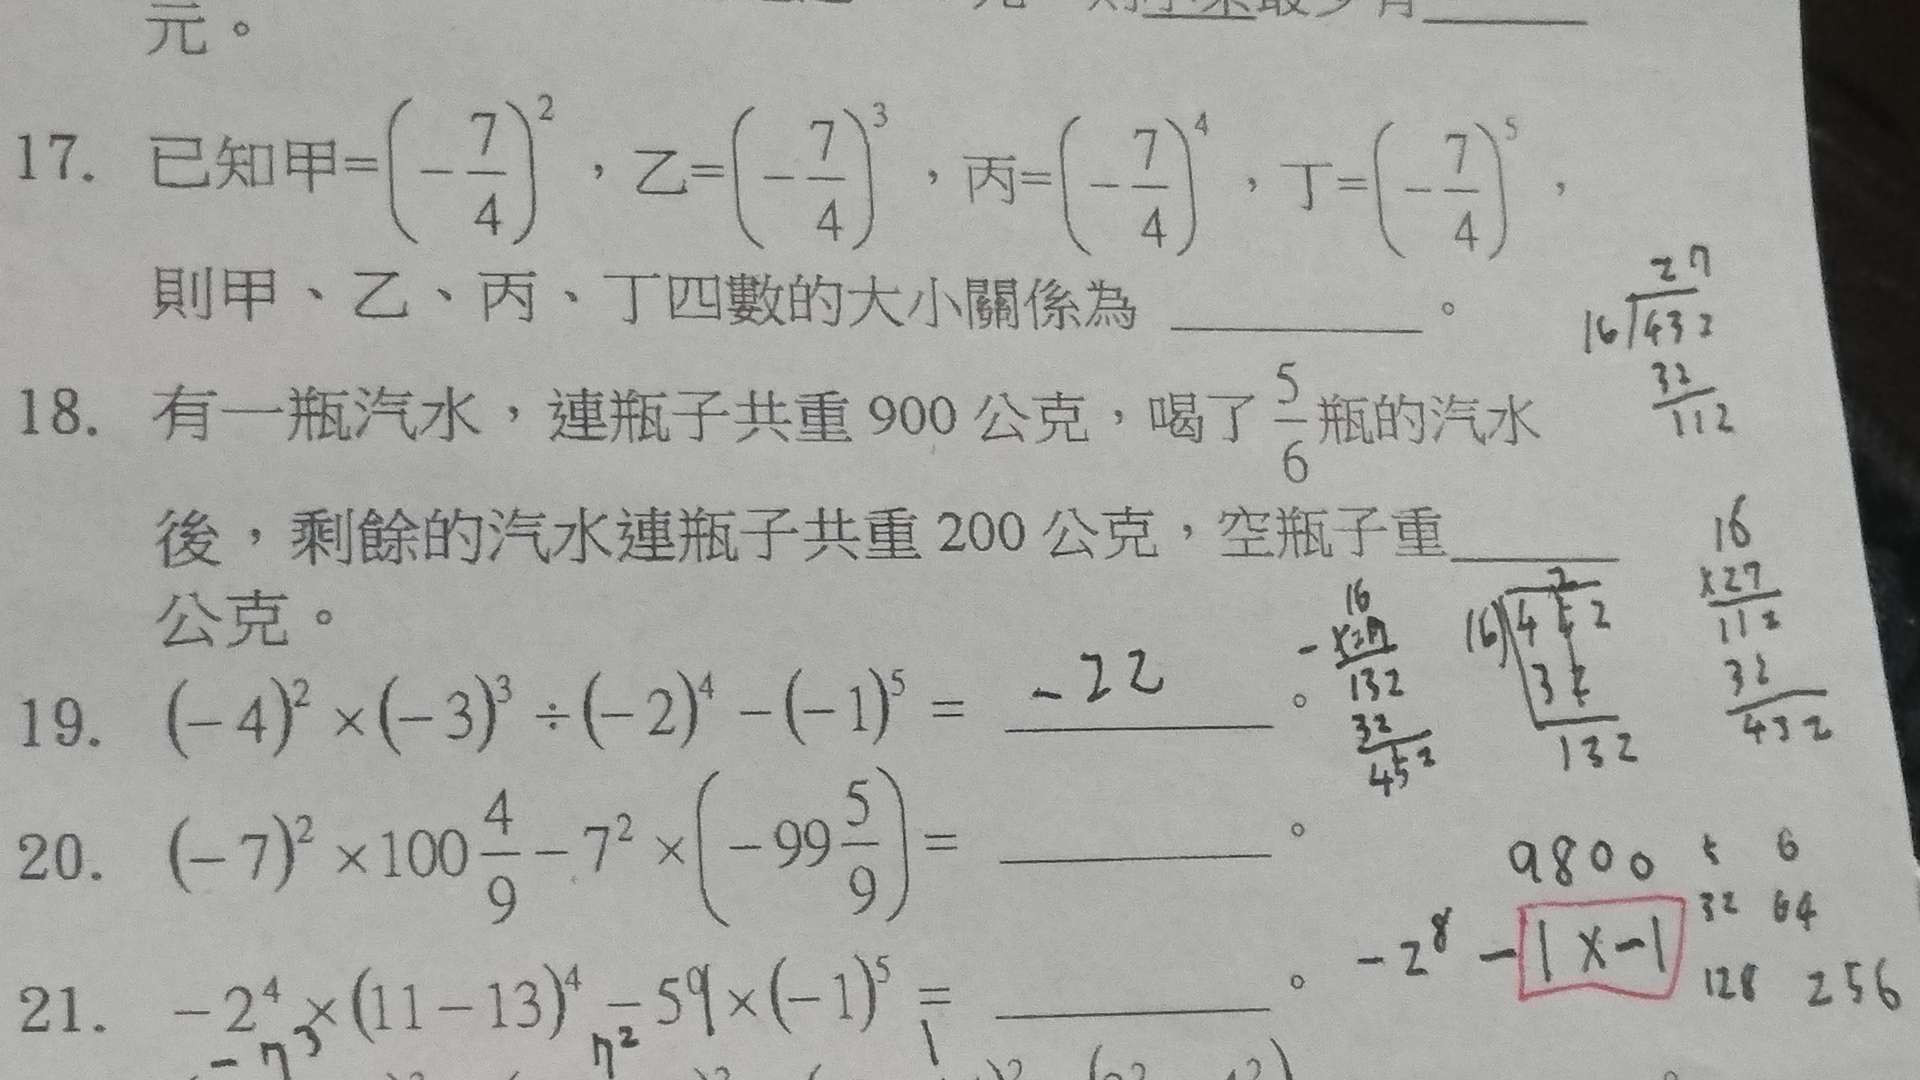 元。
17. 已知甲=(-7/4)^2，乙=(-7/4)^3，丙=(-7/4)^4，丁=(-7/4)^5，
則甲、乙、丙、丁四數的大小關係為______。
27
16)432
32
112
18. 有一瓶汽水，連瓶子共重 900 公克，喝了 5/6 瓶的汽水
後，剩餘的汽水連瓶子共重 200 公克，空瓶子重______
公克。
16
×27
112
32
432
16
×27
132
32
452
2
16)452
32
132
19. (-4)^2×(-3)^3÷(-2)^4-(-1)^5= -22 。
20. (-7)^2×100 4/9-7^2×(-99 5/9)=______。
9800
5 6
32 64
128 256
21. -2^4×(11-13)^4-59×(-1)^5=______。
-2^8 - 1×-1
-7^3 7^2 1